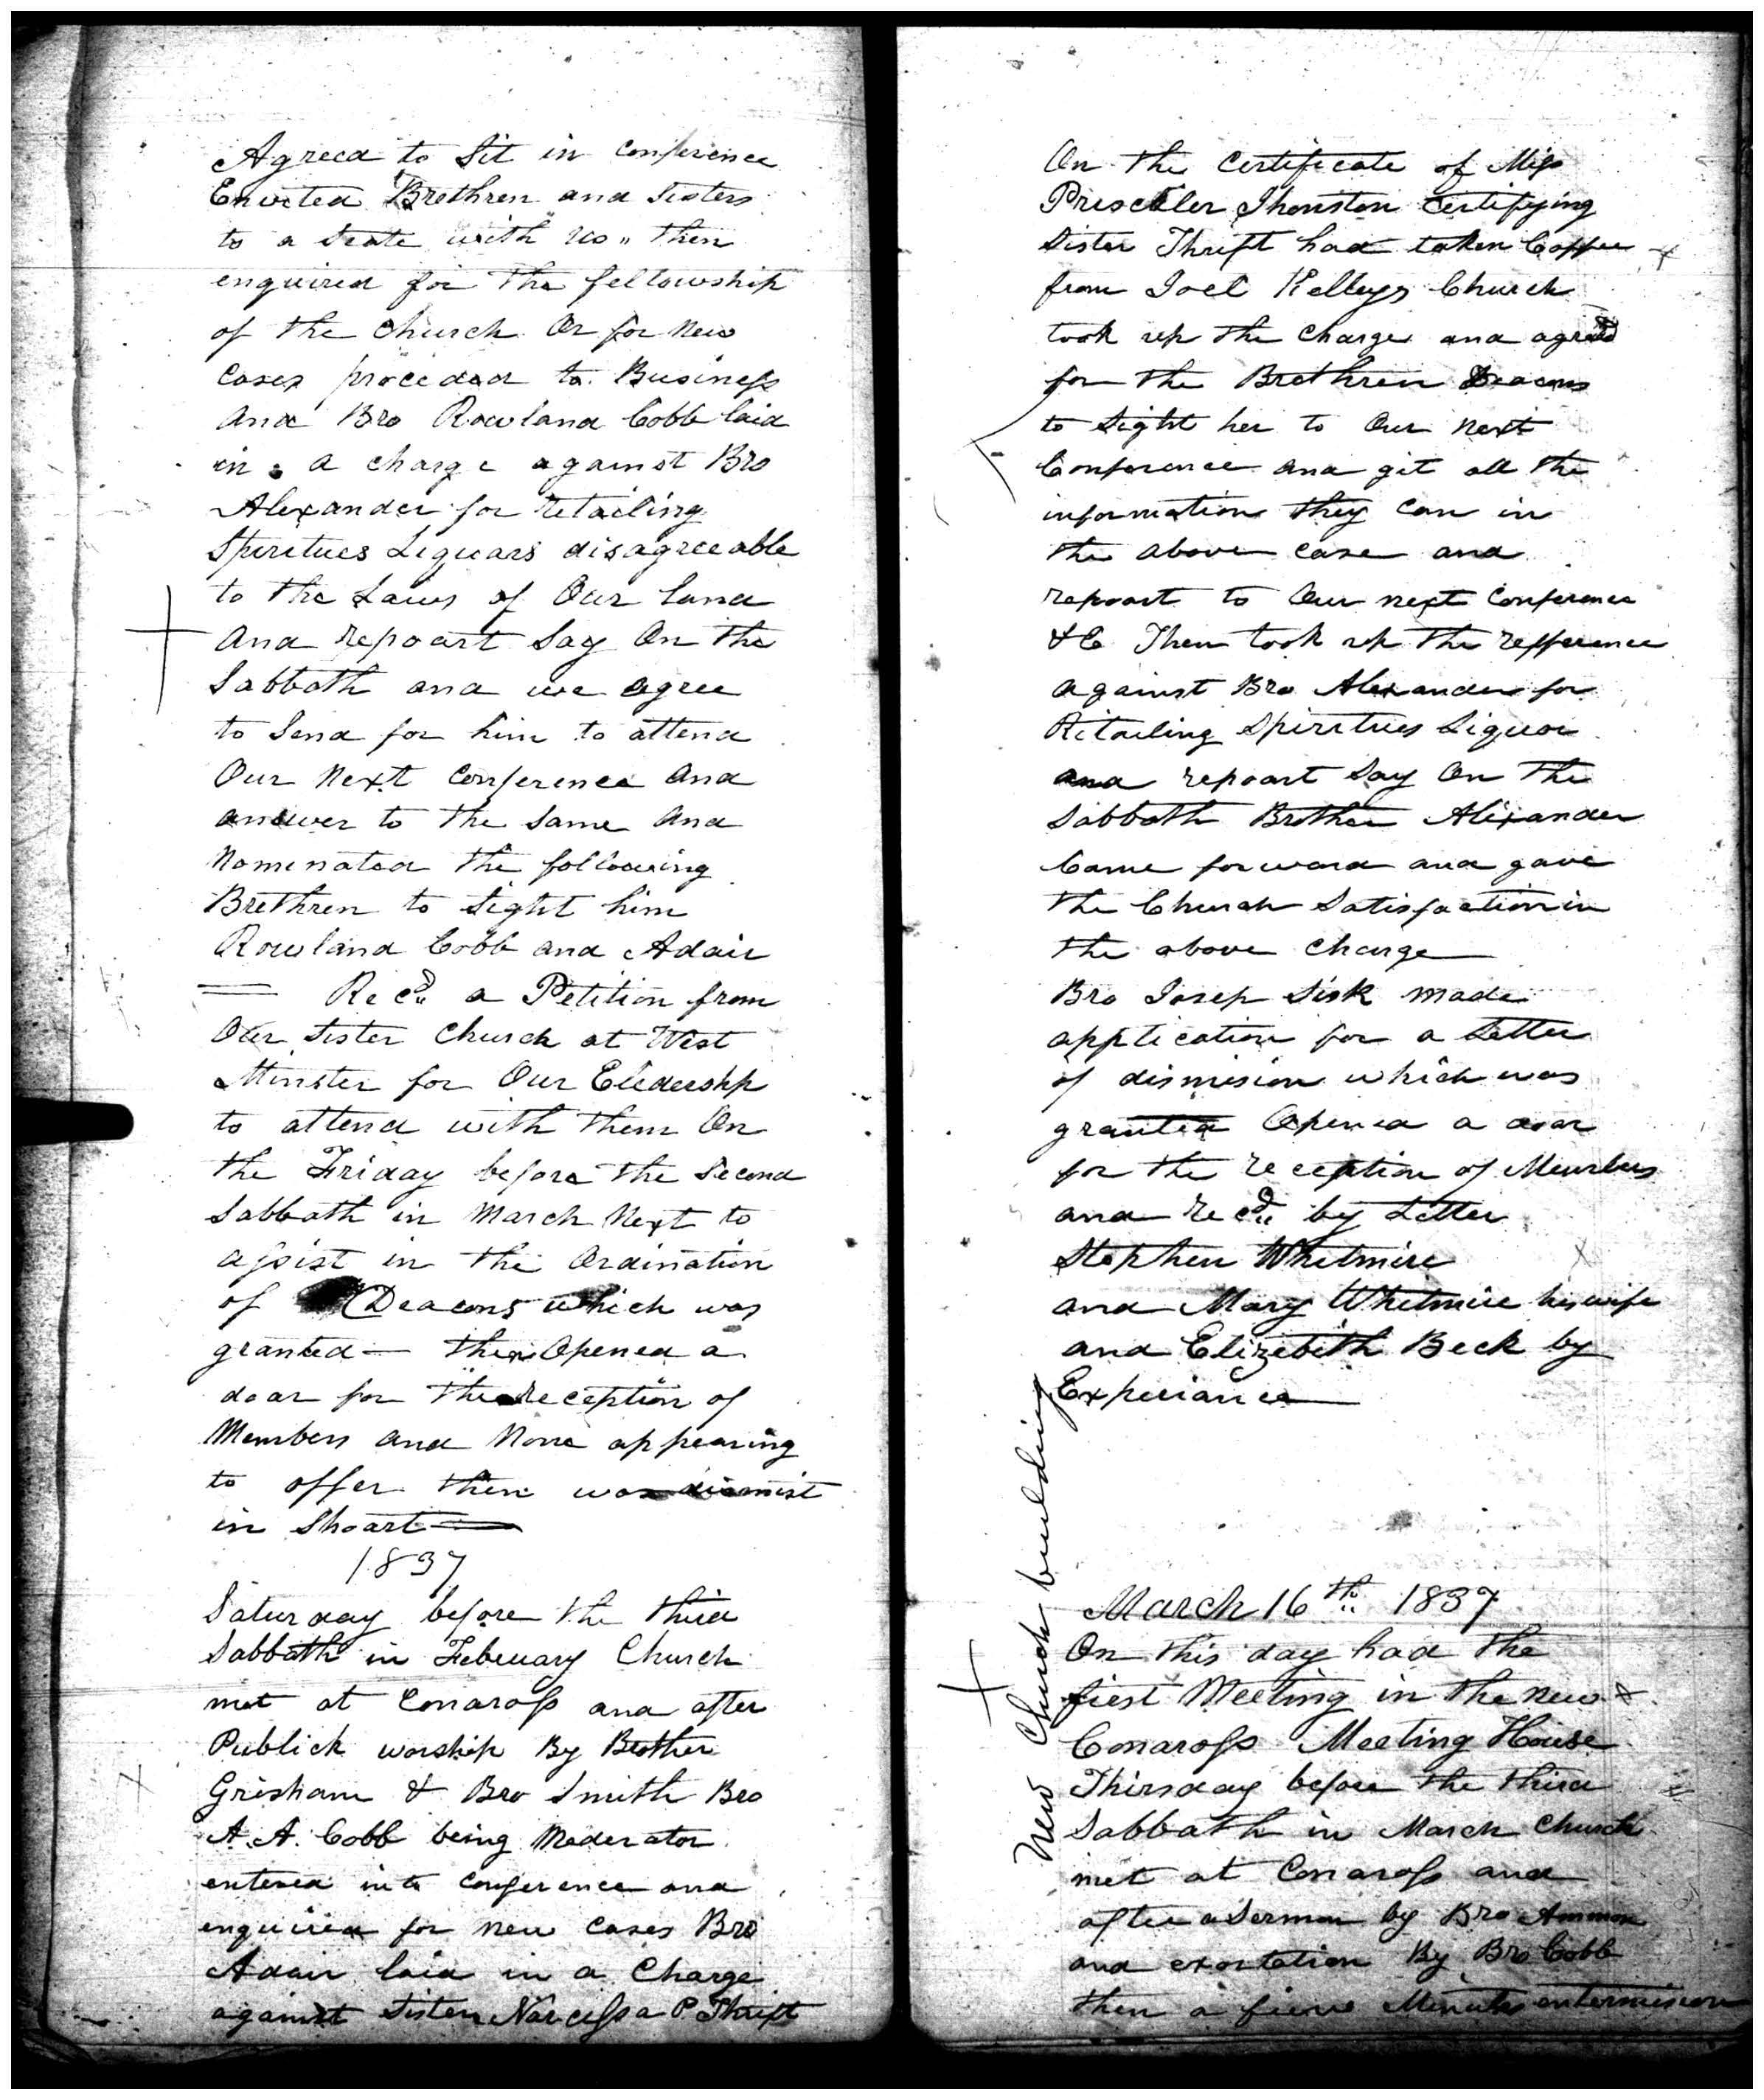 Agreed to Sit in Conference
Envited Brethren and Sisters
to a Seate with us " then
enquired for the fellowship
of the Church Or for New
Cases proceded to Business
And Bro Rowland Cobb laid
in a charge against Bro
Alexander for retailing
Spiritues Liquars disagreeable
to the Laws of Our land
And repoart Say On the
Sabbath and we agree
to Send for him to attend
Our Next Conference And
answer to the Same And
Nomenated the following
Brethren to Sight him
Rowland Cobb and Adair
Recd a Petition from
Our Sister Church at West
Minster for Our Eledership
to attend with them On
the Friday before the Second
Sabbath in March Next to
assist in the Ordination
of Deacons which was
granted — then Opened a
doar for the Reception of
Members and None appearing
to offer then was dismist
in Shoart
1837
Saturday before the third
Sabbath in February Church
met at Conaross and after
Publick worship By Brother
Grisham & Bro Smith Bro
A. A. Cobb being Moderator
entered into Conference and
enquired for new Cases Bro
Adair laid in a Charge
against Sister Narcissa P Thrift
On the Certificate of Miss
Priscller Thonston Certifying
Sister Thrift had taken Coffee
from Joel Kelleys Church
took up the Charge and agread
for the Brethren Deacons
to Sight her to Our Next
Conference and git all the
information they Can in
the above case and
repoart to Our next Conference
&C Then took up the refference
against Bro Alexander for
Retailing Spiritues Liquor
and repoart Say On the
Sabbath Brother Alixander
Came forward and gave
the Church Satisfaction in
the above charge
Bro Josep Sisk made
application for a Letter
of dismision which was
granted Opened a doar
for the reception of Members
and recd by Letter
Stephen Whitmire
and Mary Whitmire his wife
and Elizebeth Beck by
Experiance
New Church building
March 16th 1837
On this day had the
first Meeting in the new
Conaross Meeting House
Thirsday before the third
Sabbath in March Church
met at Conaross and
after a Sermon by Bro Ammon
and exortation By Bro Cobb
then a fiew Minutes entermision